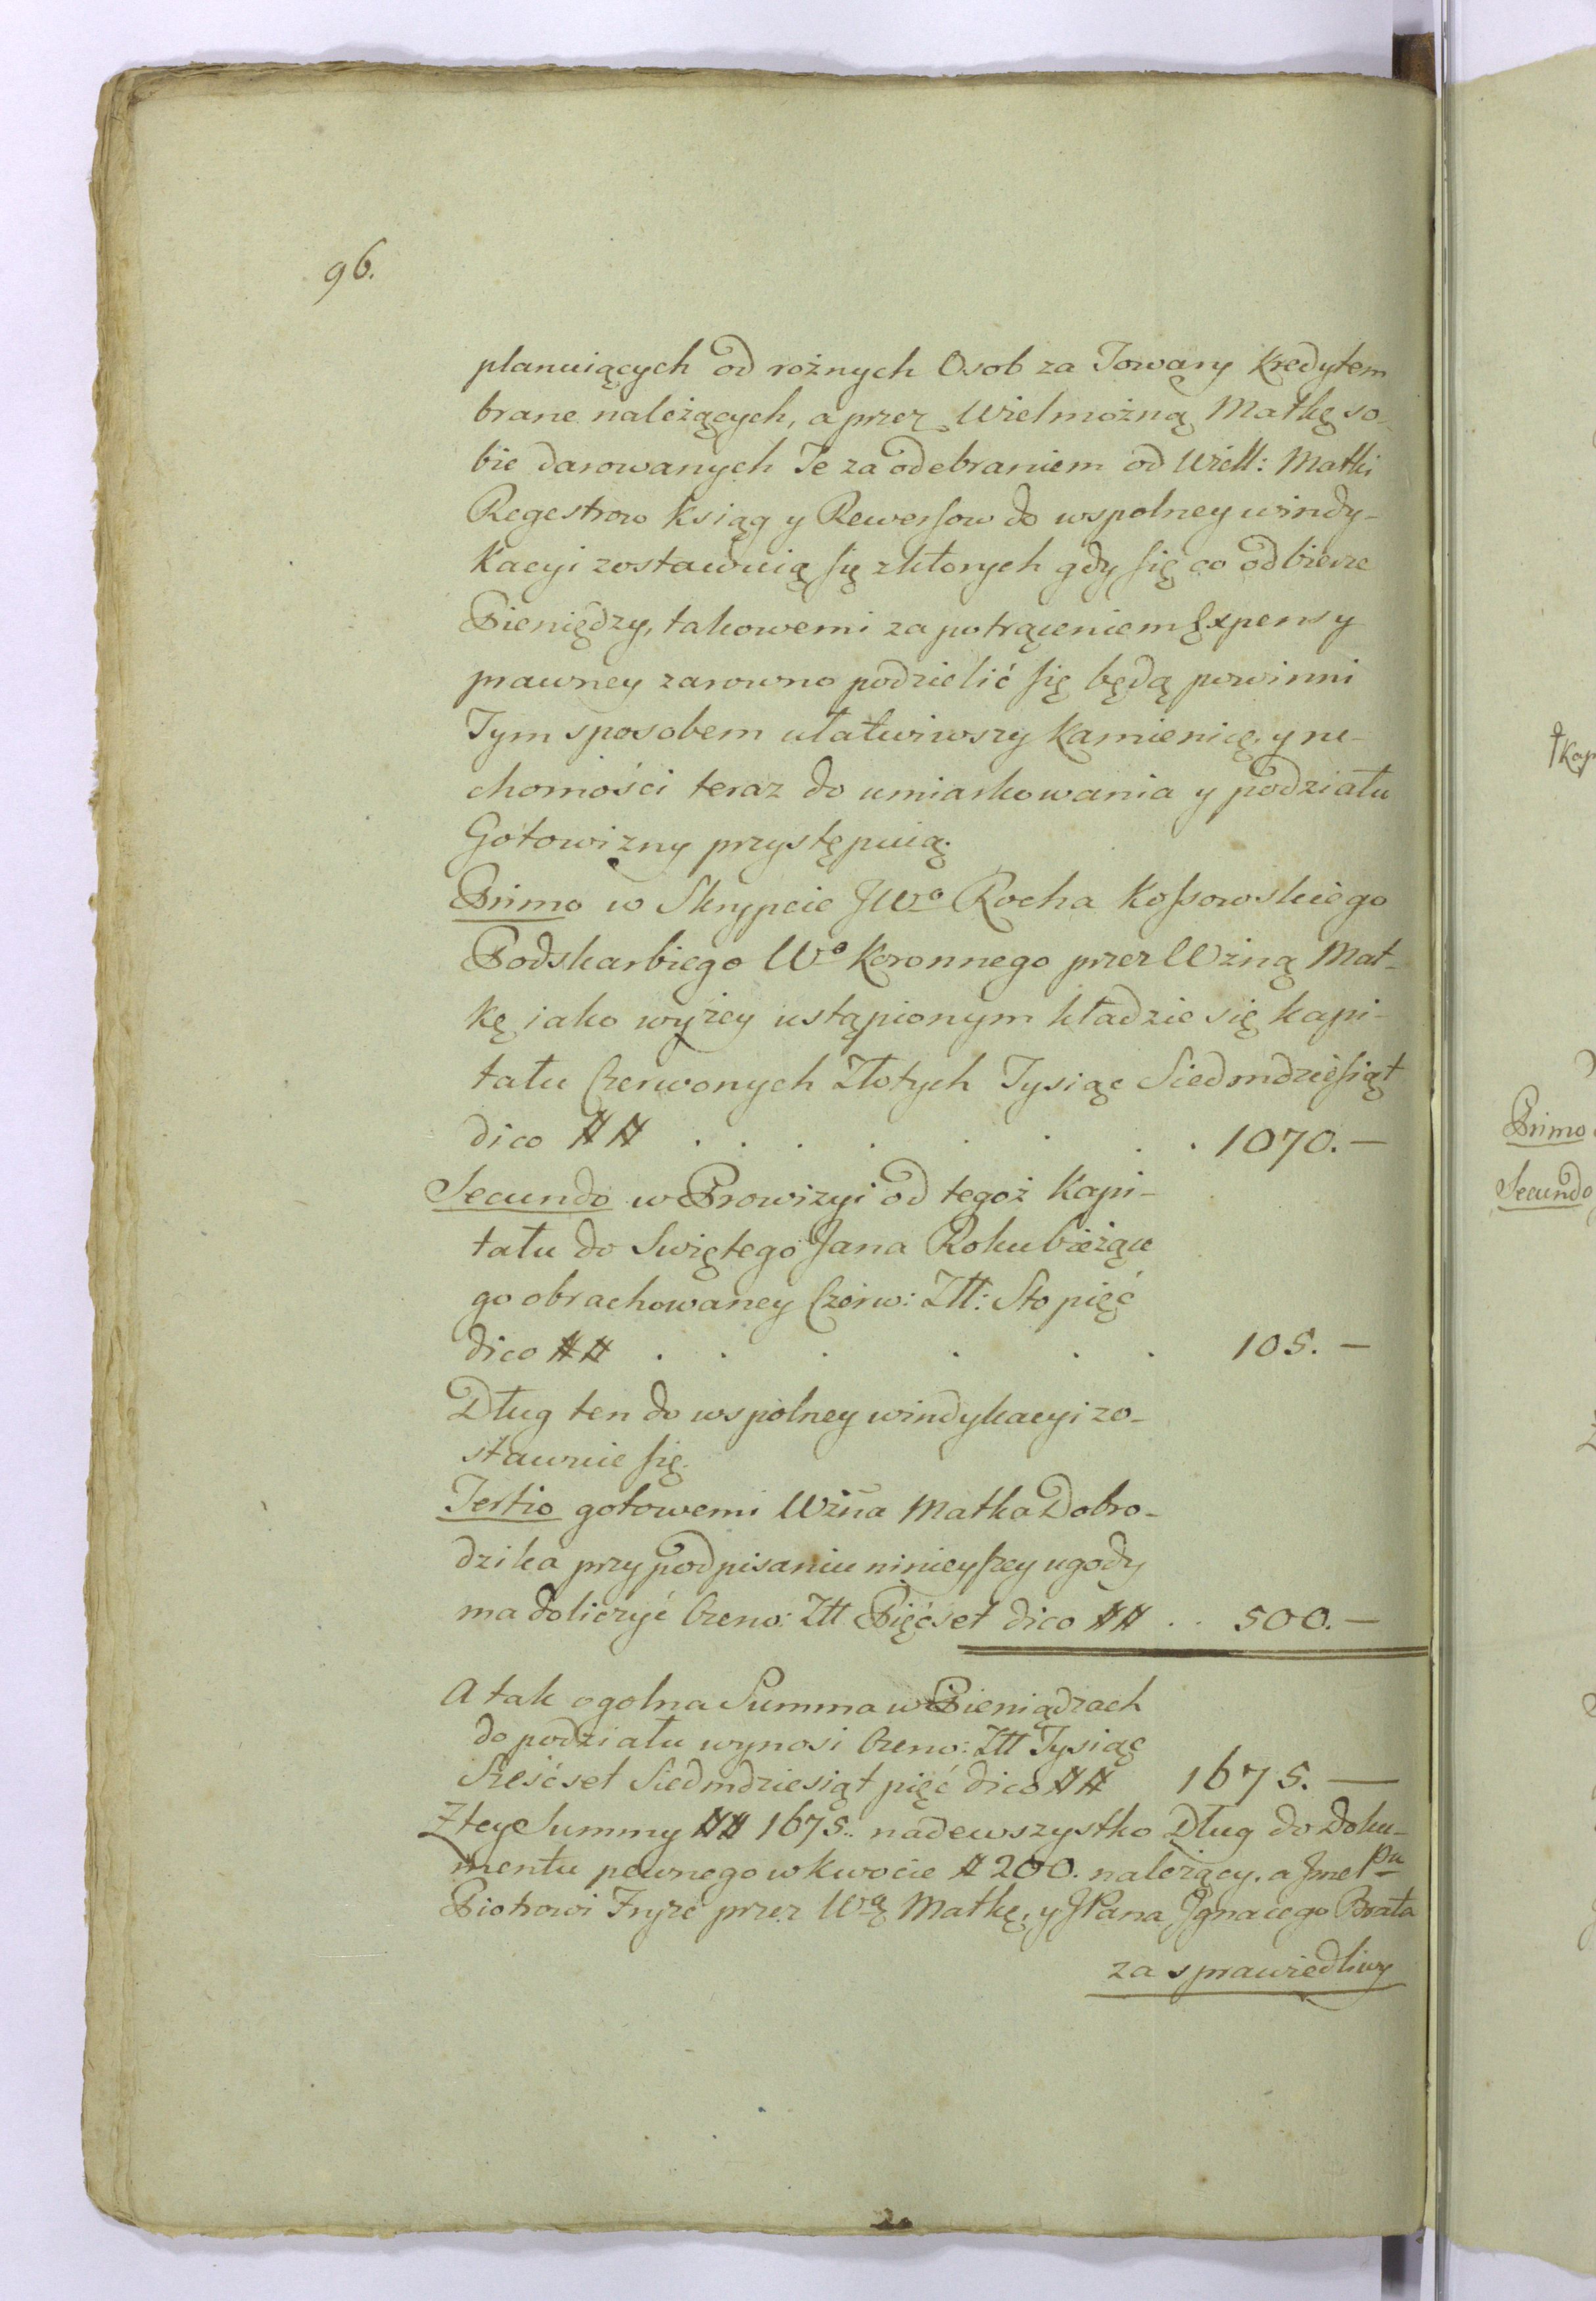 96.
planuiących od rożnych Osob za Towary Kredytem
brane należących, a przez Wielmożną Matkę so-
bie darowanych Te za odebraniem od Wiell: Matki
Regestrow Ksiąg y Rewersow do wspolney windy-
kacyi zostawuią się z ktorych gdy się co odbierze
Pieniędzy, takowemi za potrąceniem Expensy
prawney zarowno podzielić się będą powinni
Tym sposobem ułatwiwszy Kamienicę, y ru-
chomości teraz do umiarkowania y podziału
Gotowizny przystępuią.
Primo w Skrypcie JWo Rocha Kossowskiego
Podskarbiego Wo Koronnego przez Wżną Mat-
kę iako wyżey ustąpionym kładzie się kapi-
tału Czerwonych Złotych Tysiąc Siedmdziesiąt
dico ## . . . . . . . . 1070.—
Secundo w Prowizyi od tegoż Kapi-
tału do Swiętego Jana Roku bieżące
go obrachowaney Czerw: Złł: Sto pięć
dico ## . . . . . . 105.—
Dług ten do wspolney windykacyi zo-
stawuie się.
Tertio gotowemi Wżna Matka Dobro-
dzika przy podpisaniu ninieyszey ugody
ma doliczyć Czerw: Złł Pięćset dico ## . . 500.—
A tak ogolna Summa w Pieniądzach
do podziału wynosi Czerw: Złł Tysiąc
Sześćset Siedmdziesiąt pięć dico ## 1675.—
Z tey Summy ## 1675.. nadewszystko Dług do Doku-
mentu pewnego w kwocie # 200. należący, a Jme Pu
Piotrowi Fryze przez Wą Matkę, y JPana Jgnacego Brata
za sprawiedliwy
Primo
Secundo